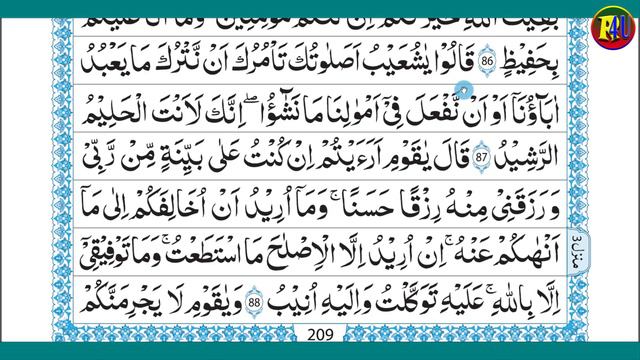 بَقِيَّتُ اللّٰهِ خَيْرٌ لَّكُمْ اِنْ كُنْتُمْ مُّؤْمِنِيْنَ ۚ وَمَاۤ اَنَا عَلَيْكُمْ
بِحَفِيْظٍ 86 قَالُوْا يٰشُعَيْبُ اَصَلٰوتُكَ تَاْمُرُكَ اَنْ نَّتْرُكَ مَا يَعْبُدُ
اٰبَآؤُنَاۤ اَوْ اَنْ نَّفْعَلَ فِيْۤ اَمْوَالِنَا مَا نَشٰٓؤُا ؕ اِنَّكَ لَاَنْتَ الْحَلِيْمُ
الرَّشِيْدُ 87 قَالَ يٰقَوْمِ اَرَءَيْتُمْ اِنْ كُنْتُ عَلٰى بَيِّنَةٍ مِّنْ رَّبِّيْ
وَرَزَقَنِيْ مِنْهُ رِزْقًا حَسَنًا ۚ وَمَاۤ اُرِيْدُ اَنْ اُخَالِفَكُمْ اِلٰى مَاۤ
اَنْهٰىكُمْ عَنْهُ ؕ اِنْ اُرِيْدُ اِلَّا الْاِصْلَاحَ مَا اسْتَطَعْتُ ؕ وَمَا تَوْفِيْقِيْۤ
اِلَّا بِاللّٰهِ ؕ عَلَيْهِ تَوَكَّلْتُ وَاِلَيْهِ اُنِيْبُ 88 وَيٰقَوْمِ لَا يَجْرِمَنَّكُمْ
منزل 3
209